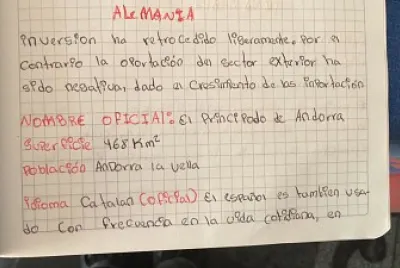 ALEMANIA
inversion ha retrocedido ligeramente. Por el
Contrario la aportación del sector exterior ha
sido negativa, dado el Crecimiento de las importación
NOMBRE OFICIAL: El Principado de Andorra
Superficie 468 Km²
Población Andorra la vella
Idioma Catalan (oficial) El español es tambien usa-
do con frecuencia en la vida cotidiana, en